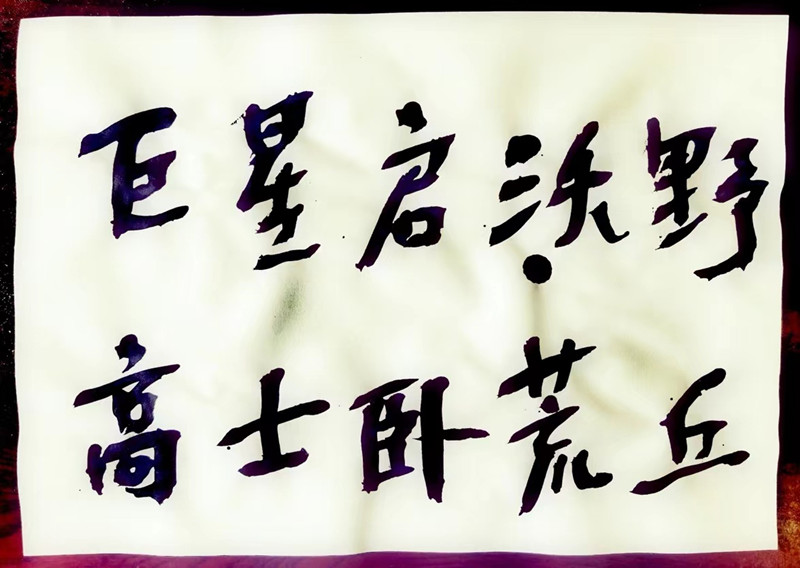 巨星启沃野
高士卧荒丘